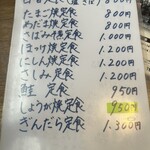 定食 800円
たまご焼定食 800円
めだま焼定食 800円
さばみそ定食 1.000円
ほっけ焼定食 1.200円
にしん焼定食 1.200円
さしみ定食 1.200円
鮭定食 950円
しょうが焼定食 950円
ぎんだら定食 1.300円